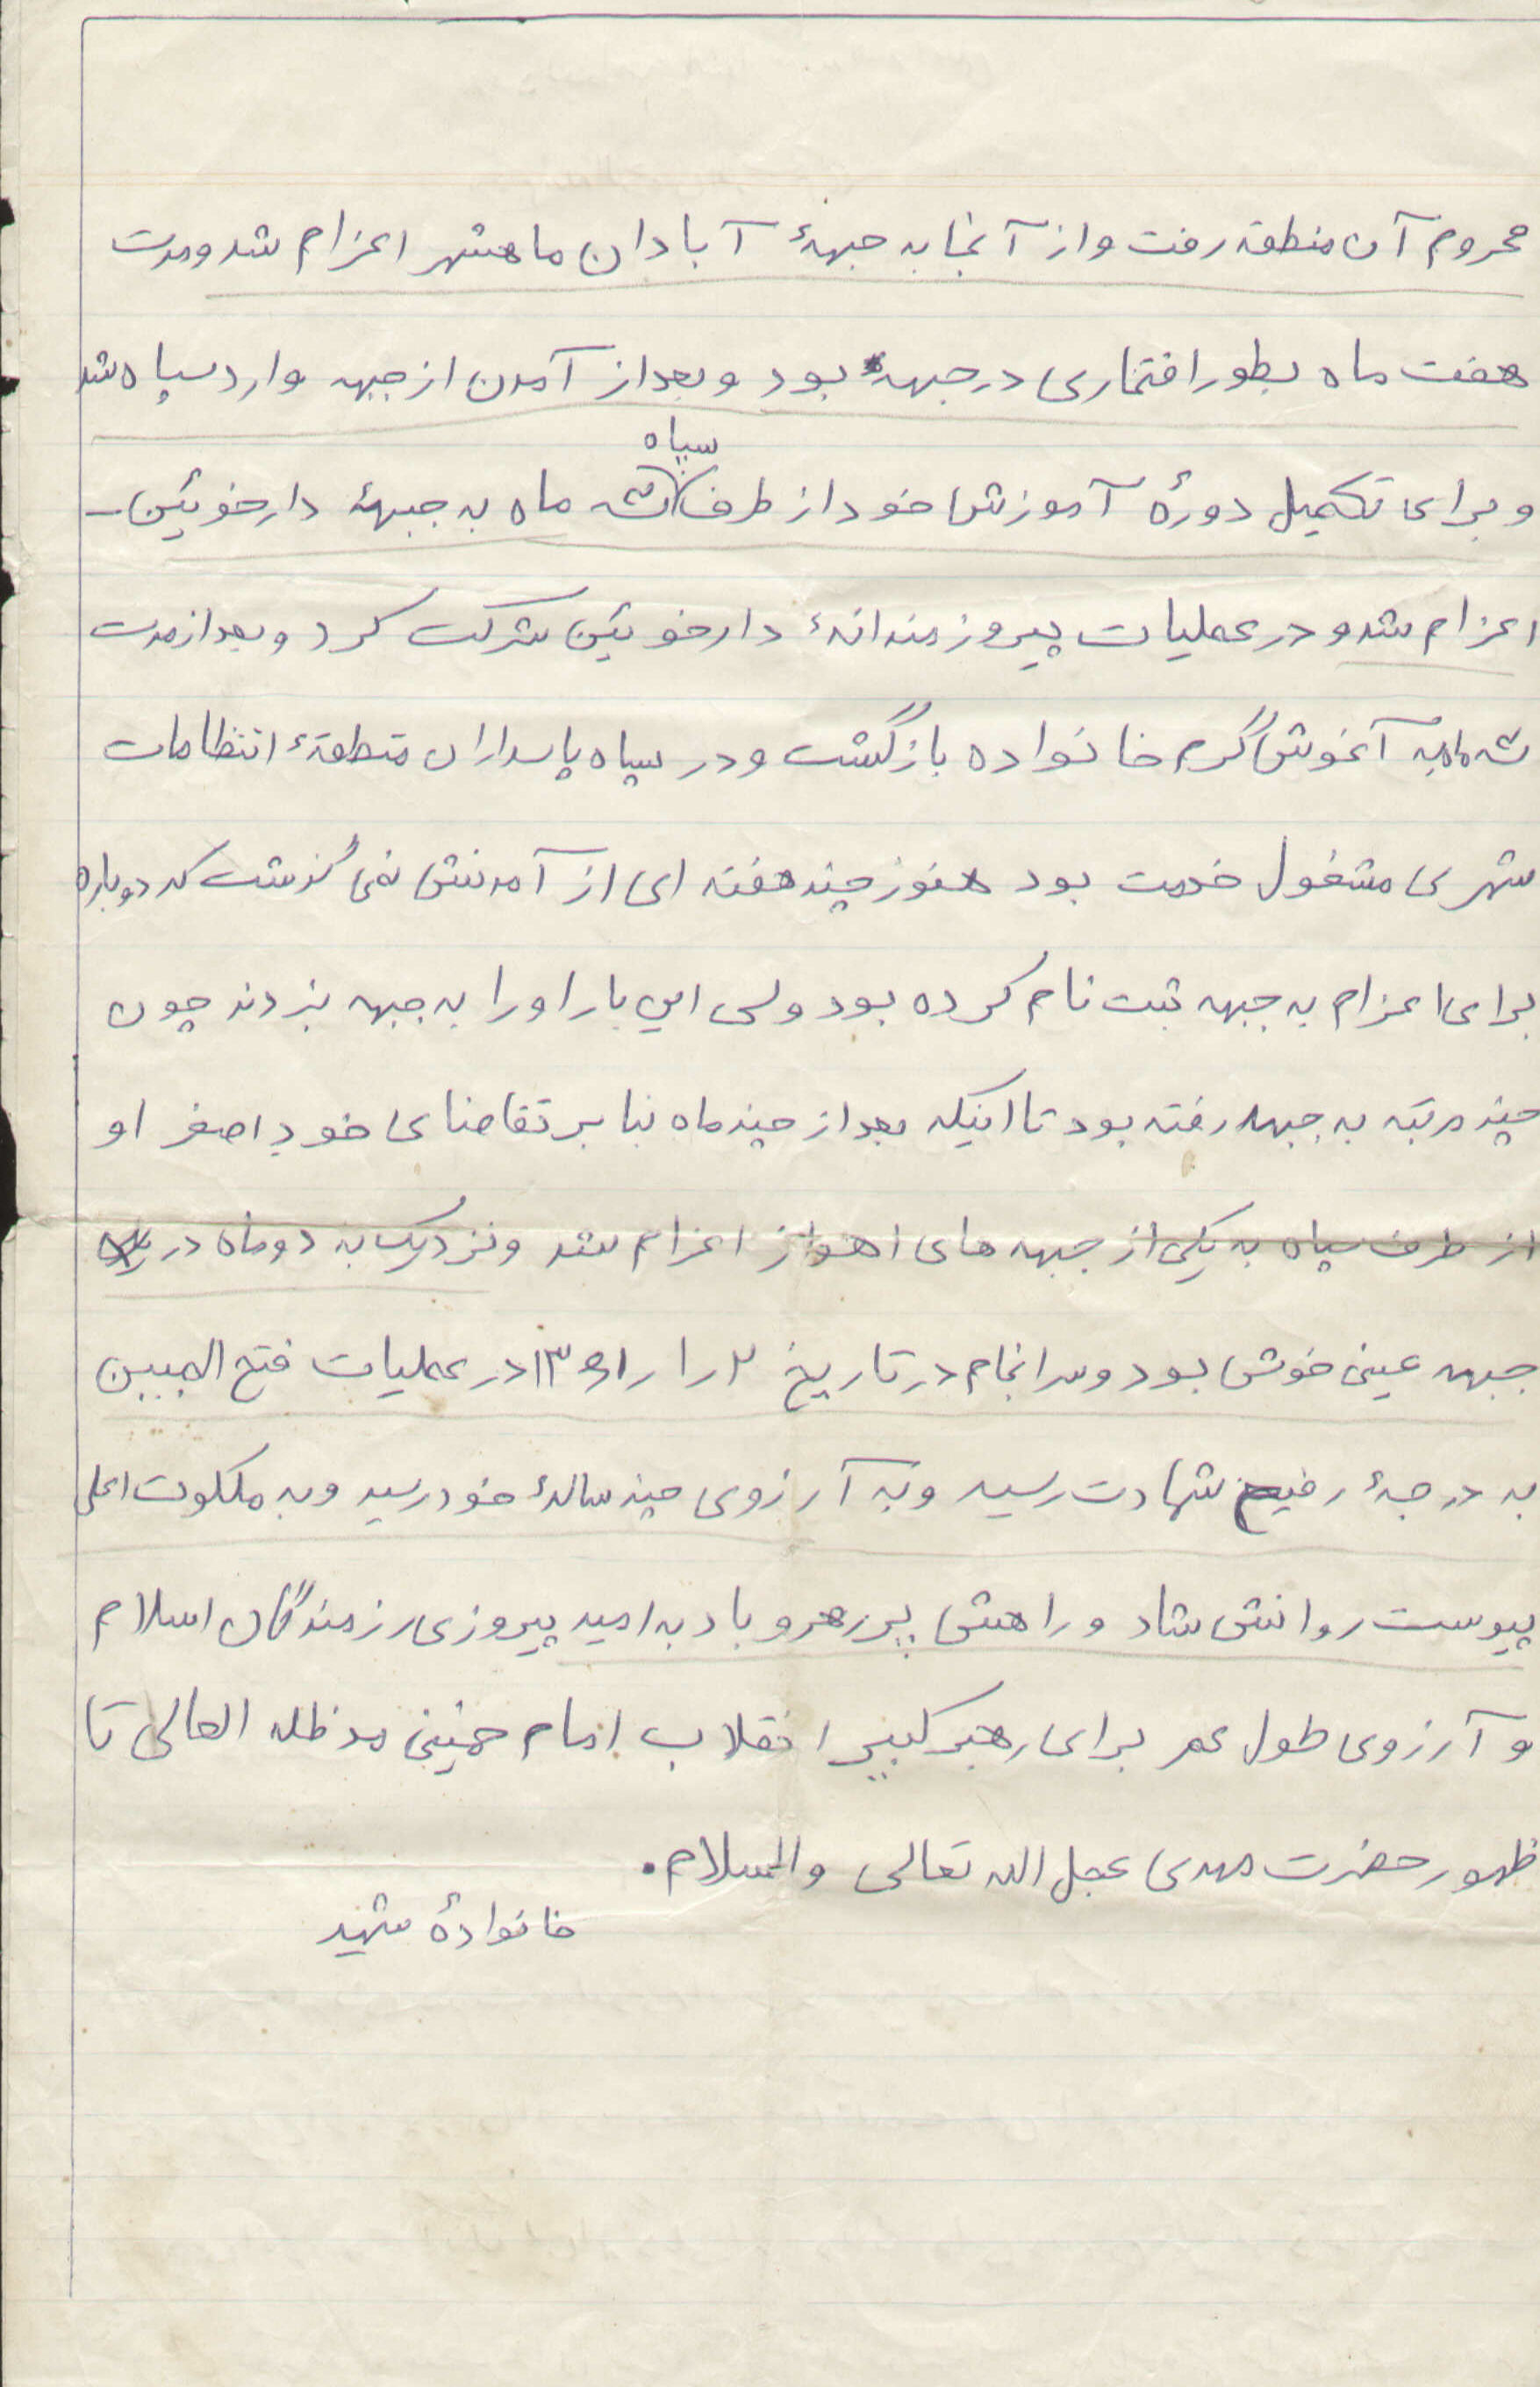 محروم آن منطقه رفت و از آنجا به جبههٔ آبادان ماهشهر اعزام شد و مدت
هفت ماه بطور افتخاری در جبهه بود و بعد از آمدن از جبهه وارد سپاه شد
و برای تکمیل دورهٔ آموزش خود از طرف سپاه سه ماه به جبههٔ دارخوئین -
اعزام شد و در عملیات پیروزمندانهٔ دارخوئین شرکت کرد و بعد از مدت
سه ماه به آغوش گرم خانواده بازگشت و در سپاه پاسداران منطقهٔ انتظامات
شهری مشغول خدمت بود هنوز چند هفته ای از آمدنش نمی گذشت که دوباره
برای اعزام به جبهه ثبت نام کرده بود ولی این بار او را به جبهه نبردند چون
چند مرتبه به جبهه رفته بود تا اینکه بعد از چند ماه بنا بر تقاضای خود اصغر او
از طرف سپاه به یکی از جبهه های اهواز اعزام شد و نزدیک به دو ماه در
جبهه عینی خوش بود و سرانجام در تاریخ ۲ ر۱ ر۱۳۶۱ در عملیات فتح المبین
به درجهٔ رفیع شهادت رسید و به آرزوی چند سالهٔ خود رسید و به ملکوت اعلی
پیوست روانش شاد و راهش پررهرو باد به امید پیروزی رزمندگان اسلام
و آرزوی طول عمر برای رهبر کبیر انقلاب امام خمینی مد ظله العالی تا
ظهور حضرت مهدی عجل الله تعالی والسلام.
خانوادهٔ شهید